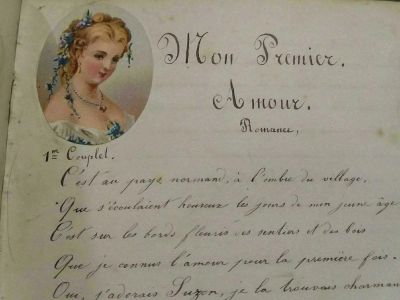 Mon Premier.
Amour.
Romance,
1er Couplet.
C'est au pays normand, à l'ombre du village,
Que s'écoulaient heureux les jours de mon jeune âge
C'est sur les bords fleuris des sentiers et des bois
Que je connus l'amour pour la première fois.
Oui, j'adorais Suzon, je la trouvais charmant